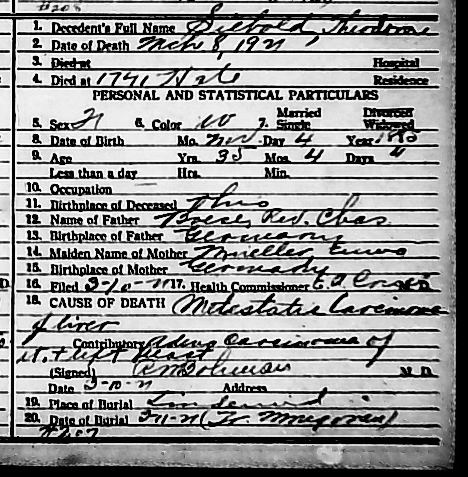 #208
1. Decedent's Full Name Siebold, Theodore
2. Date of Death Mch 8, 1921
3. Died at Hospital
4. Died at 1741 Residence
PERSONAL AND STATISTICAL PARTICULARS
Married Divorced
5. Sex 6. Color W 7. Single Widowed
8. Date of Birth Mo. Nov. Day 4 Year 1885
9. Age Yrs. 35 Mos. 4 Days 4
Less than a day Hrs. Min.
10. Occupation
11. Birthplace of Deceased Ohio
12. Name of Father Boese, Rev. Chas
13. Birthplace of Father Germany
14. Maiden Name of Mother Mueller, Emma
15. Birthplace of Mother Germany
16. Filed 3-10-21 17. Health Commissioner M D
18. CAUSE OF DEATH Metastatic Carcinoma
of liver
Contributory Adeno Carcinoma of
rt. & left breast
(Signed) M. D.
Date 3-10-21 Address
19. Place of Burial
20. Date of Burial 3-11-21
#207